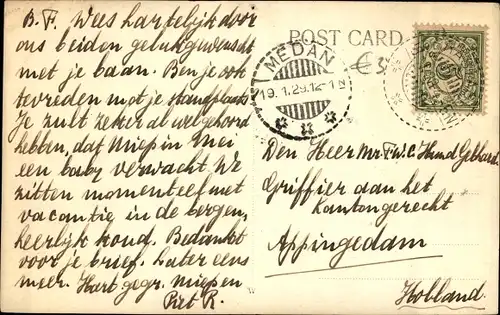 B. F. Wees hartelijk door
ons beiden gelukgewenscht
met je baan. Ben je ook
tevreden met je standplaats
Je zult zeker al wel gehoord
hebben, dat Miep in Mei
een baby verwacht. We
zitten momenteel met
vacantie in de bergen,
heerlijk koud. Bedankt
voor je brief. Later eens
meer. Hart. gegr. Miep en
Piet R.
POST CARD
MEDAN
19.1.29.12-1 N
€5
5
Den Heer Mr. F.W.C. Hund Gebhard
Griffier aan het
Kantongerecht
Appingedam
Holland